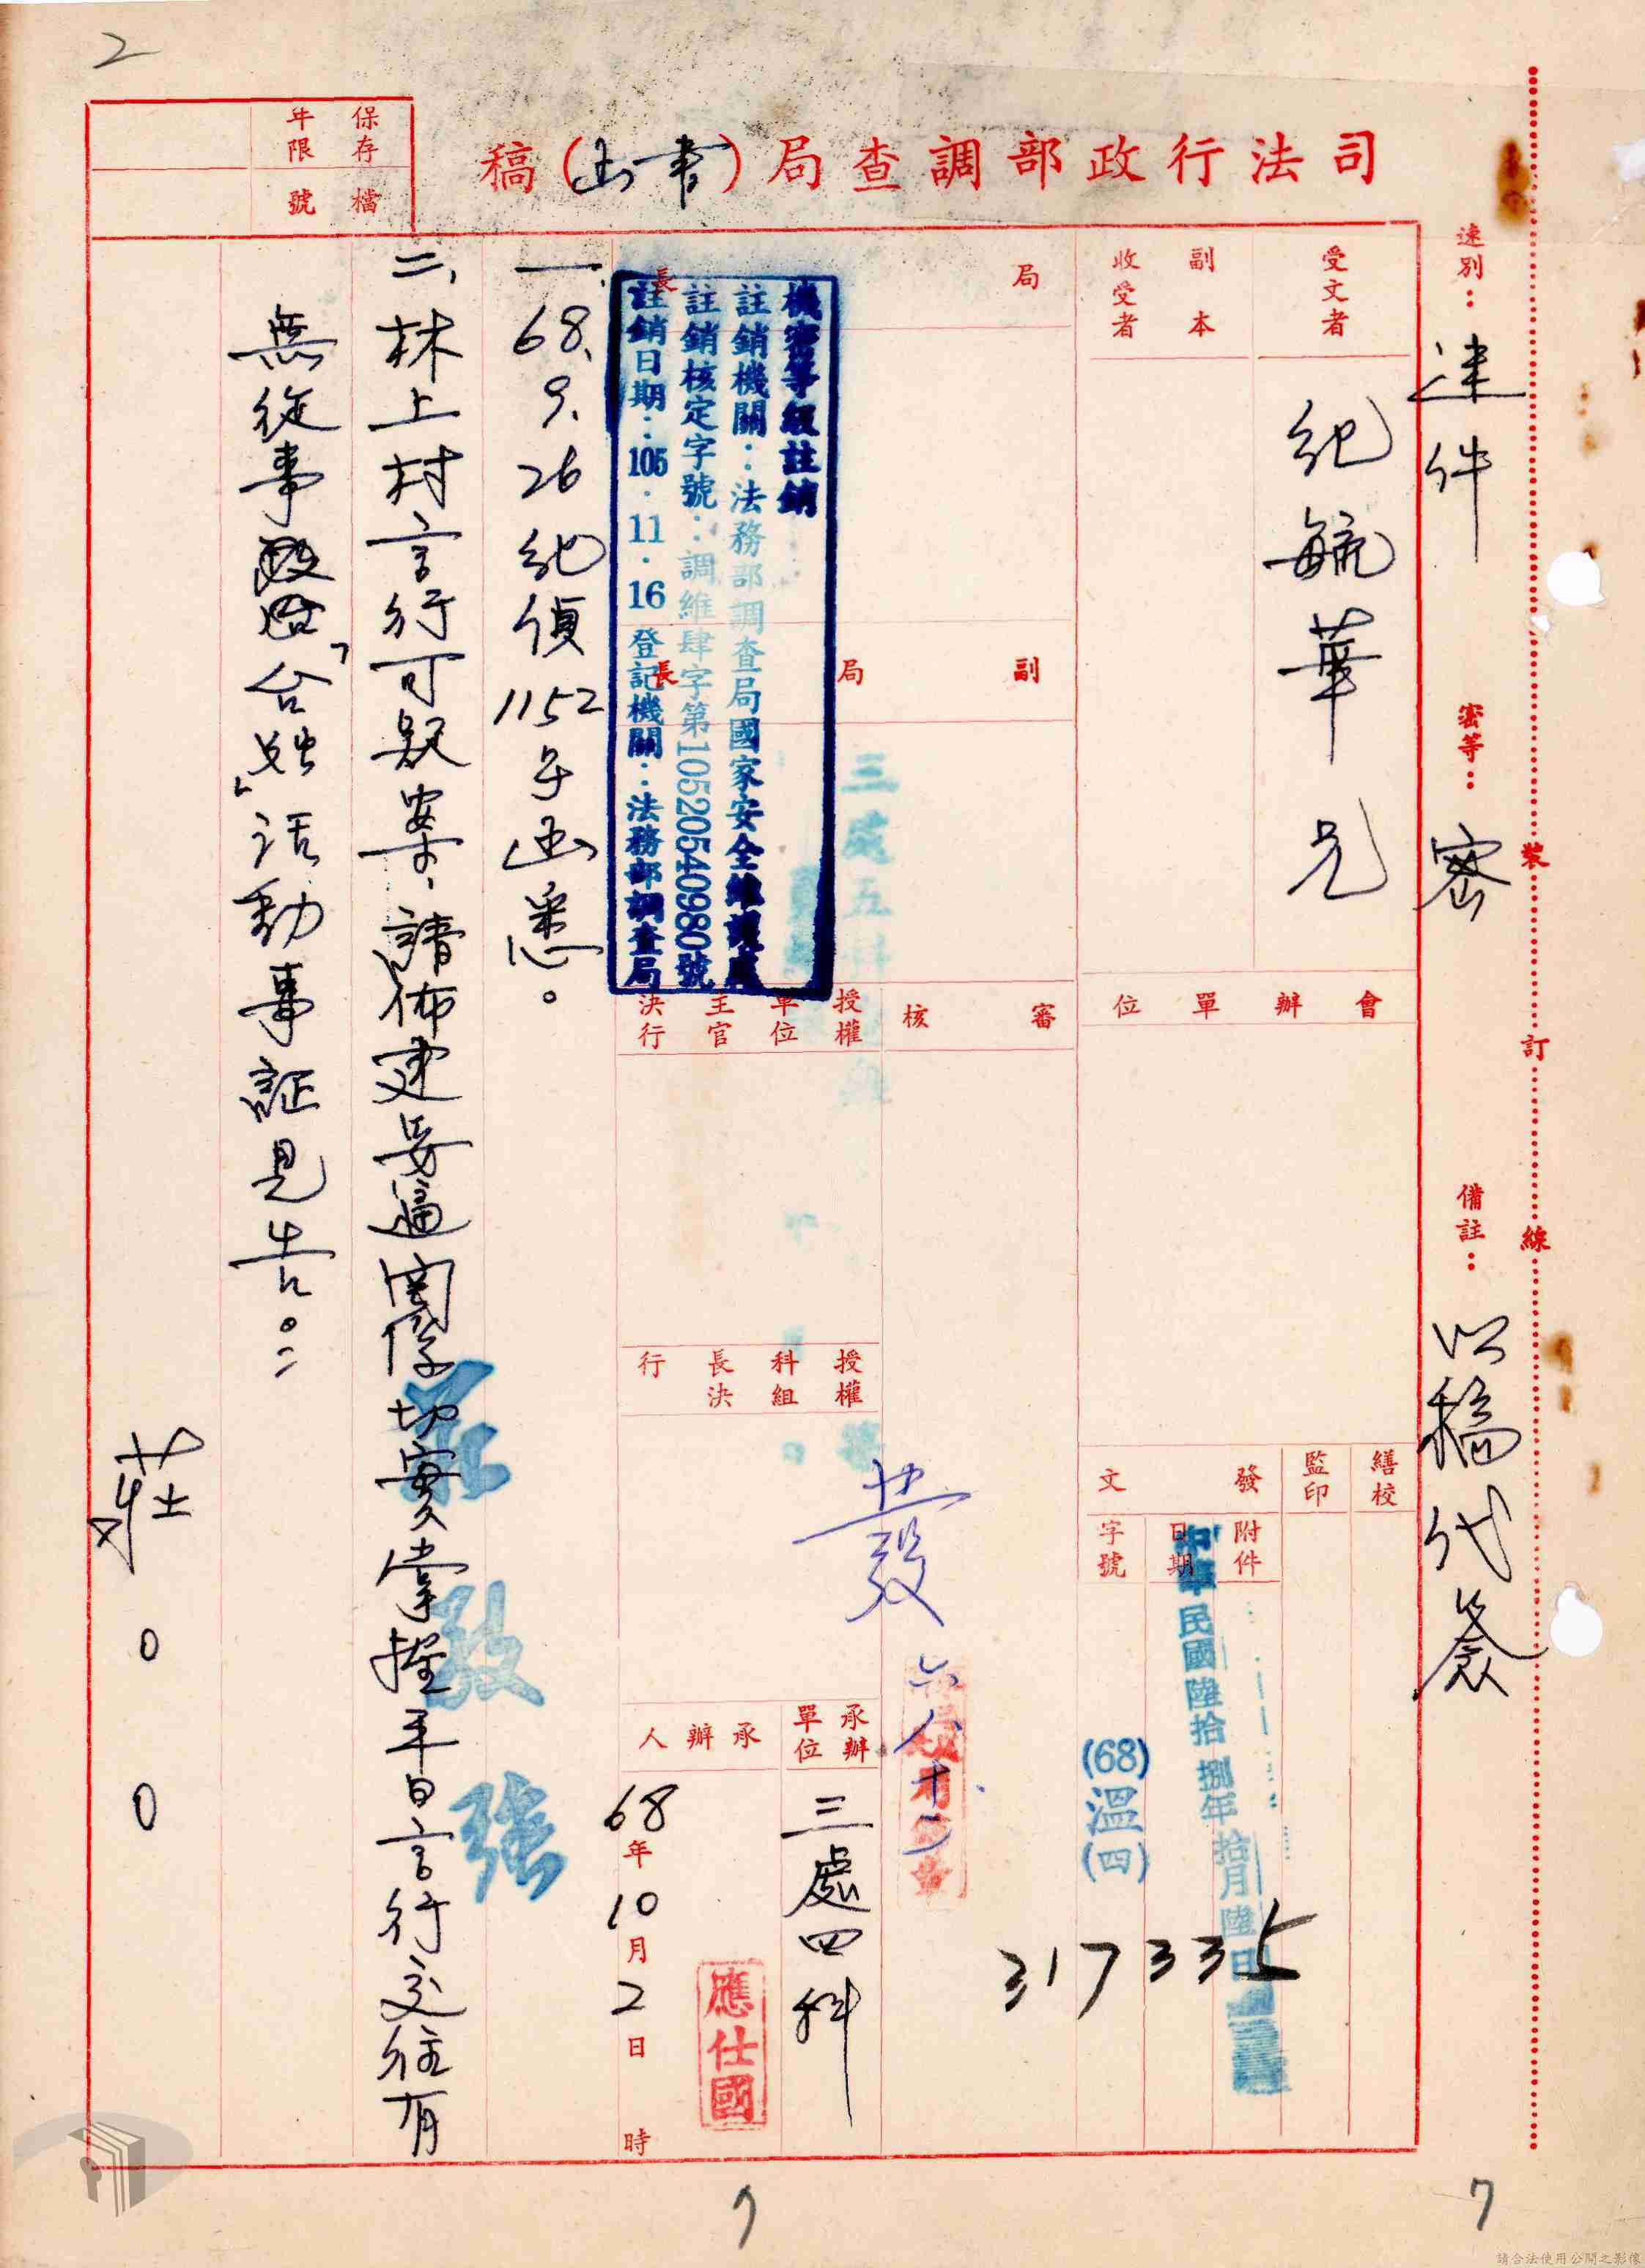 2
司法行政部調查局(書函)稿
保存年限
檔號
速別：速件
密等：密
備註：以稿代簽
裝
訂
線
受文者
紀毓華兄
副本收受者
會辦單位
繕校
監印
發文
附件
日期
字號
中華民國陸拾捌年拾月陸日
(68)溫(四)
317335
局長
副局長
審核
授權單位主官決行
授權科組長決行
發
六八十
承辦單位
三處四科
承辦人
應仕國
68年10月2日時
機密等級註銷
註銷機關：法務部調查局國家安全維護處
註銷核定字號：調維肆字第10520540980號
註銷日期：105.11.16登記機關：法務部調查局
一、68、9、26紀偵1152號函悉。
二、林上村言行可疑案，請佈建妥適關係切實掌握平日言行交往有
無從事「台獨」活動事証見告。
莊00
7
請合法使用公開之影像